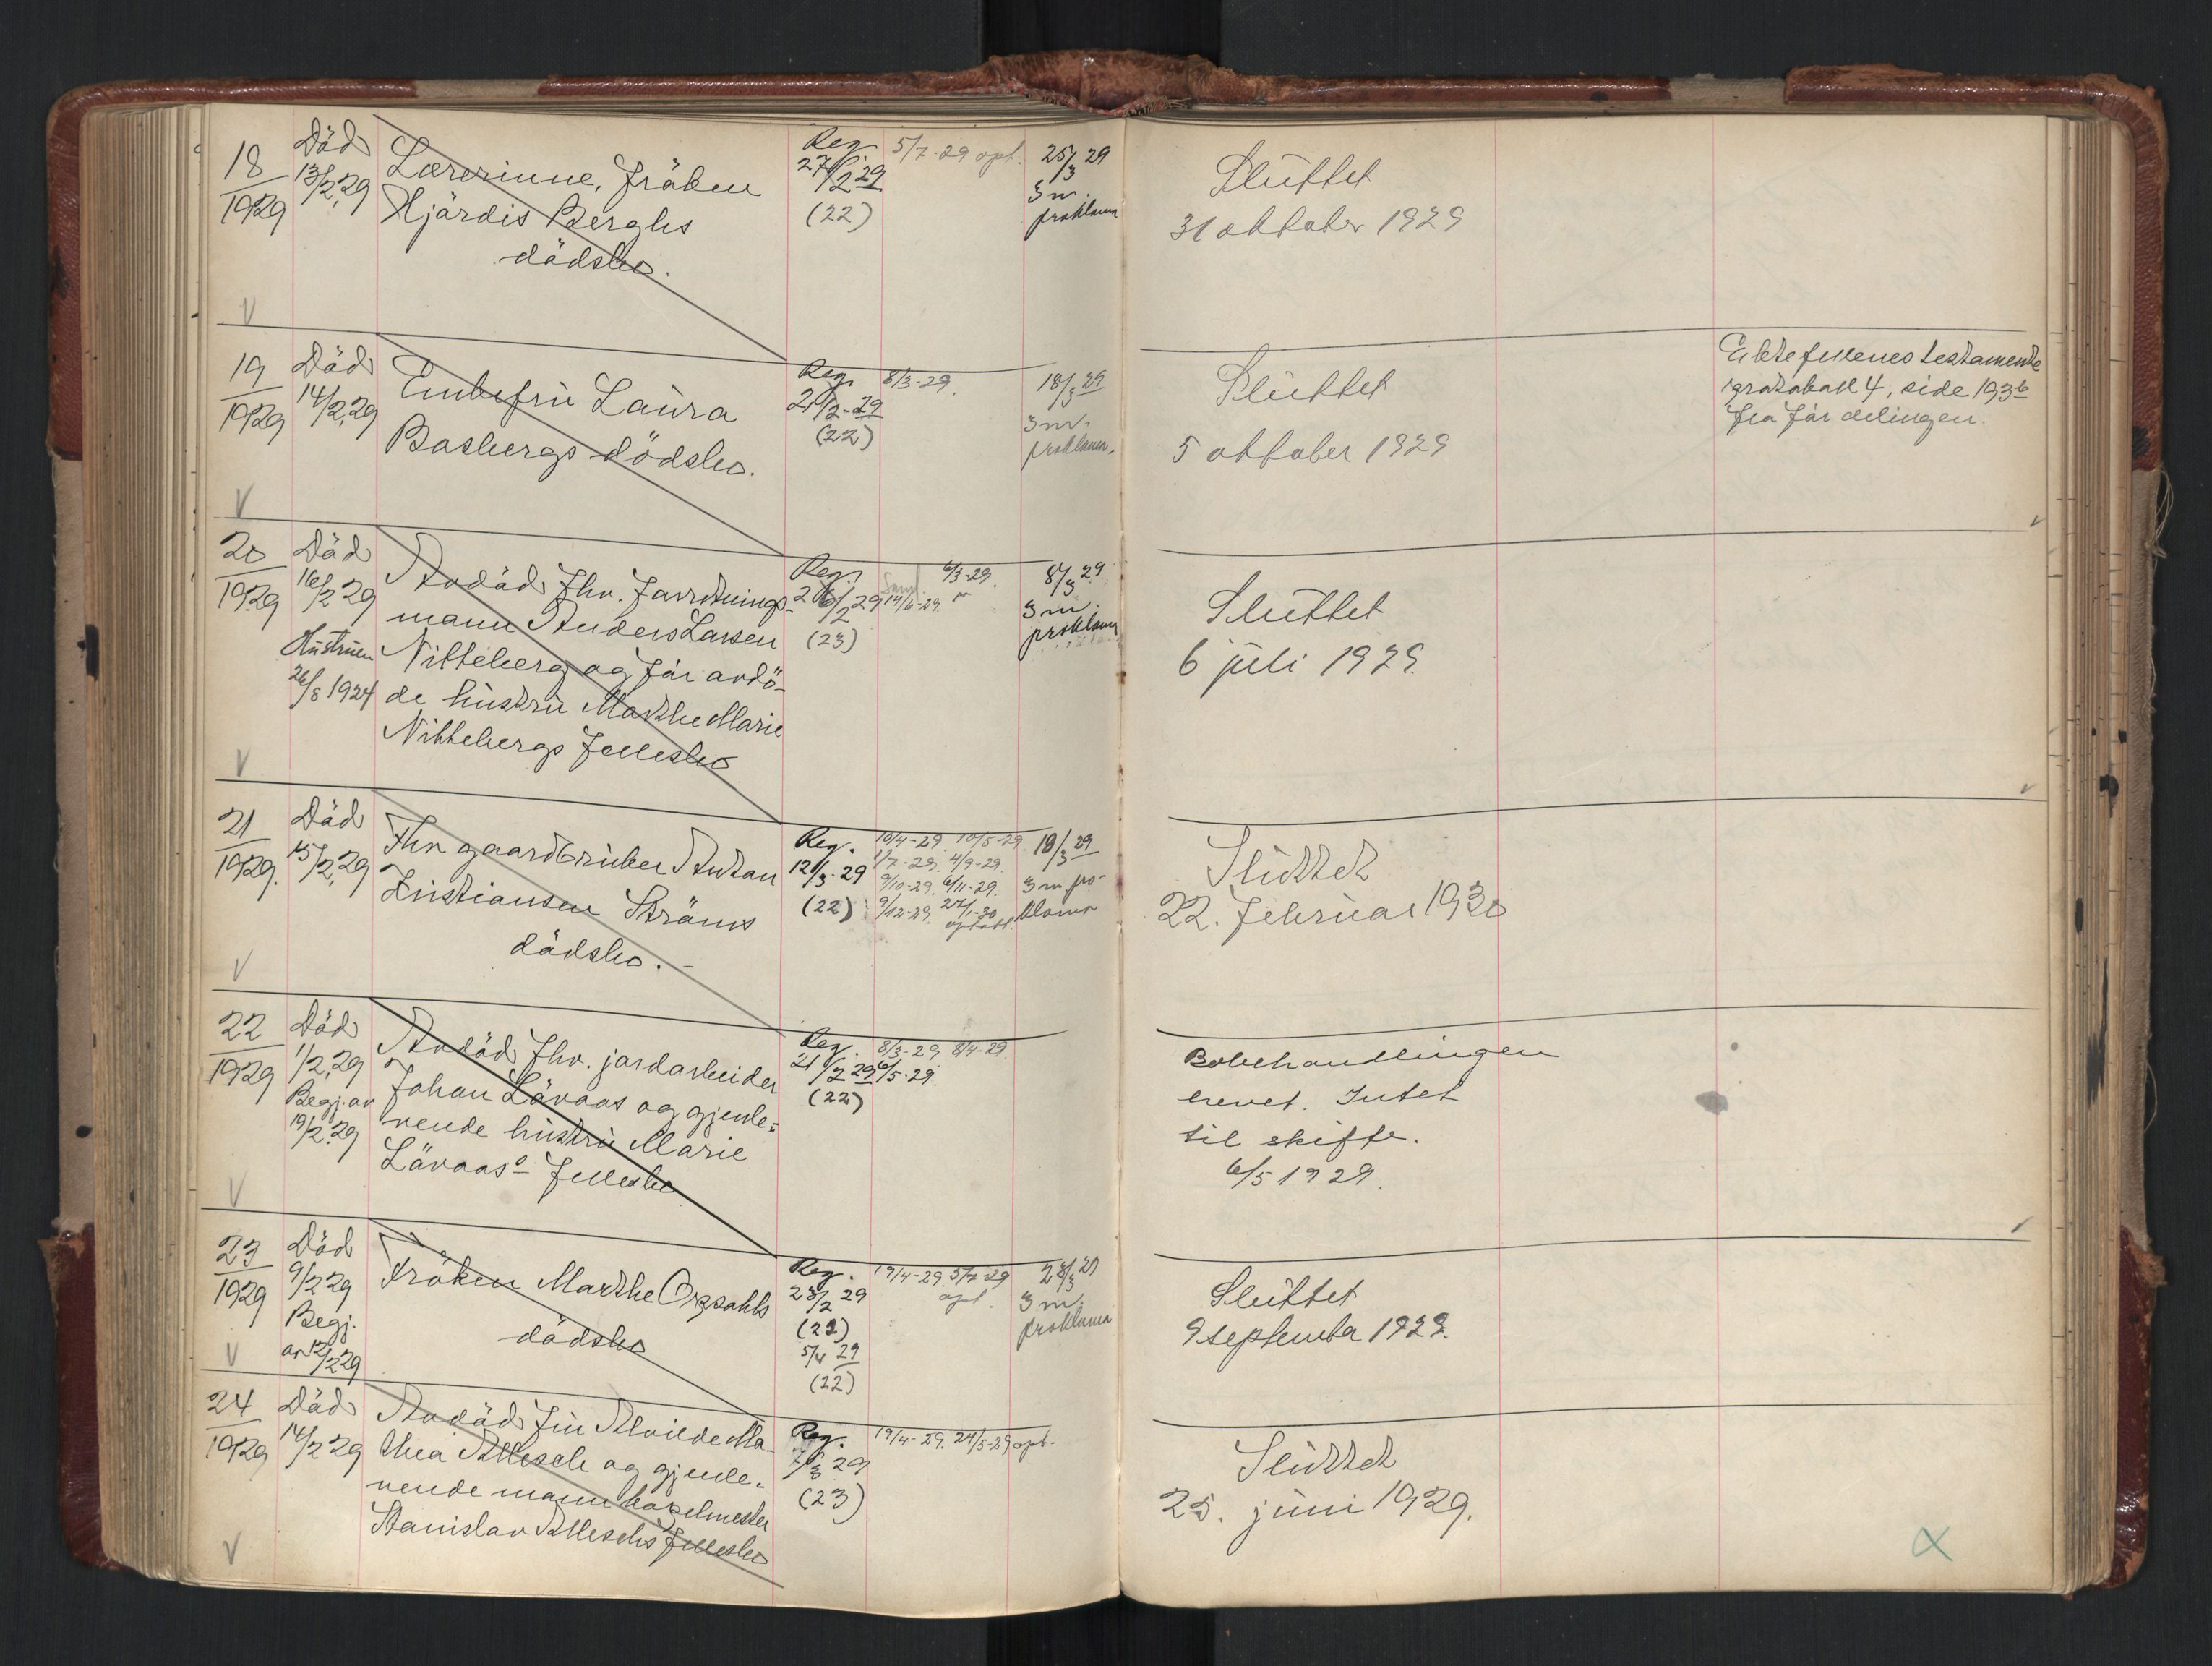 18
1929
Död
13/2.29
Lærerinne, fröken
Hjördis Berghs
dödsbo.
Reg.
27/2 29
(22)
5/7-29 opt.
25/3 29
3 m.
proklama
Sluttet
31 oktober 1929
V
19
1929
Död
14/2.29
Enkefru Laura
Basbergs dödsbo.
Reg.
21/2-29
(22)
8/3-29.
18/3 29
3 m.
proklama.
Sluttet
5 oktober 1929
Ektefellenes testamente
protokoll 4, side 193b
fra för delingen.
V
20
1929
Död
16/2 29
Hustruen
26/8 1924
Avdöd fhv. forretnings-
mann Anders Larsen
Nitteberg og för avdö-
de hustru Marthe Marie
Nittebergs fellesbo
Reg.
26/2 29
(23)
6/3-29.
14/6-29.
8/3 29
3 m.
proklama
Sluttet
6 juli 1929.
V
21
1929.
Död
15/2.29
Fhv gaardbruker Anton
Kristiansen Ströms
dödsbo.-
Reg.
12/3-29
(22)
10/4-29. 10/5-29
1/7-29. 4/9-29.
9/10-29. 6/11-29.
9/12-29. 27/1-30
opt.att.
18/3 29
3 m pro-
klama
Sluttet
22. februar 1930
V
22
1929
Död
1/2.29
Begj. av
19/2.29
Avdöd fhv. jordarbeider
Johan Lövaas og gjenle-
vende hustru Marie
Lövaas' fellesbo
Reg.
21/2 29
(22)
8/3-29 8/4-29.
6/5-29.
Bobehandlingen
hevet. Intet
til skifte.
6/5 1929.
V
23
1929
Död
9/2 29
Begj.
av 12/2 29
Fröken Marthe Opsahls
dödsbo
Reg.
28/2 29
(22)
5/4 29
(22)
19/4-29. 5/7-29
opt.
28/3 29
3 m.
proklama
Sluttet
9 september 1929.
V
24
1929
Död
14/2 29
Avdöd fru Alvilde Ma-
thea Allesch og gjenle-
vende mann kapelmester
Stanislav Alleschs fellesbo
Reg.
7/3 29
(23)
19/4-29. 24/5-29 opt.
Sluttet
25. juni 1929.
V